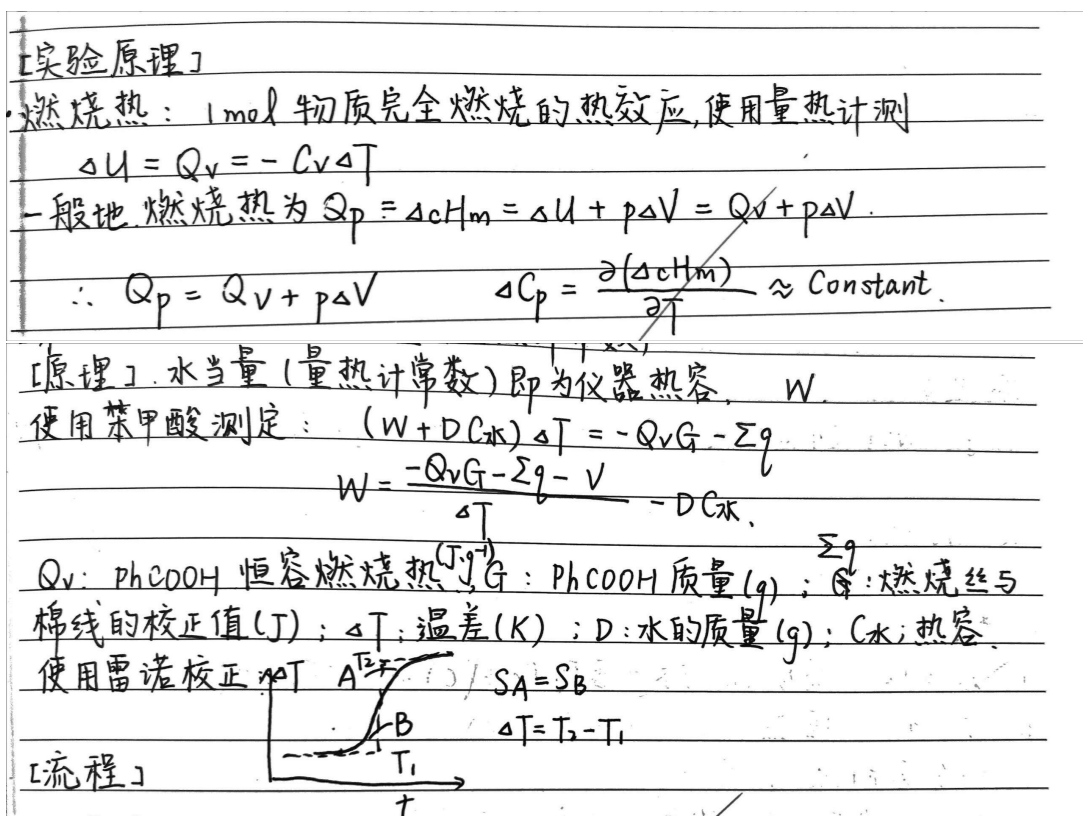 [实验原理]
·燃烧热：1mol 物质完全燃烧的热效应,使用量热计测
ΔU = Qv = - CvΔT
一般地.燃烧热为 Qp = ΔcHm = ΔU + pΔV = Qv + pΔV.
∴ Qp = Qv + pΔV ΔCp = ∂(ΔcHm)/∂T ≈ Constant.
[原理].水当量(量热计常数)即为仪器热容. W.
使用苯甲酸测定： (W + D C水) ΔT = -QvG - Σq
W = (-QvG - Σq - V)/ΔT - D C水.
Qv: PhCOOH 恒容燃烧热(J·g⁻¹); G : PhCOOH 质量(g) ; Σq :燃烧丝与
棉线的校正值(J) ; ΔT: 温差(K) ; D:水的质量(g); C水:热容.
使用雷诺校正: ΔT A T2 SA = SB
B ΔT = T2 - T1
T1
[流程]
t